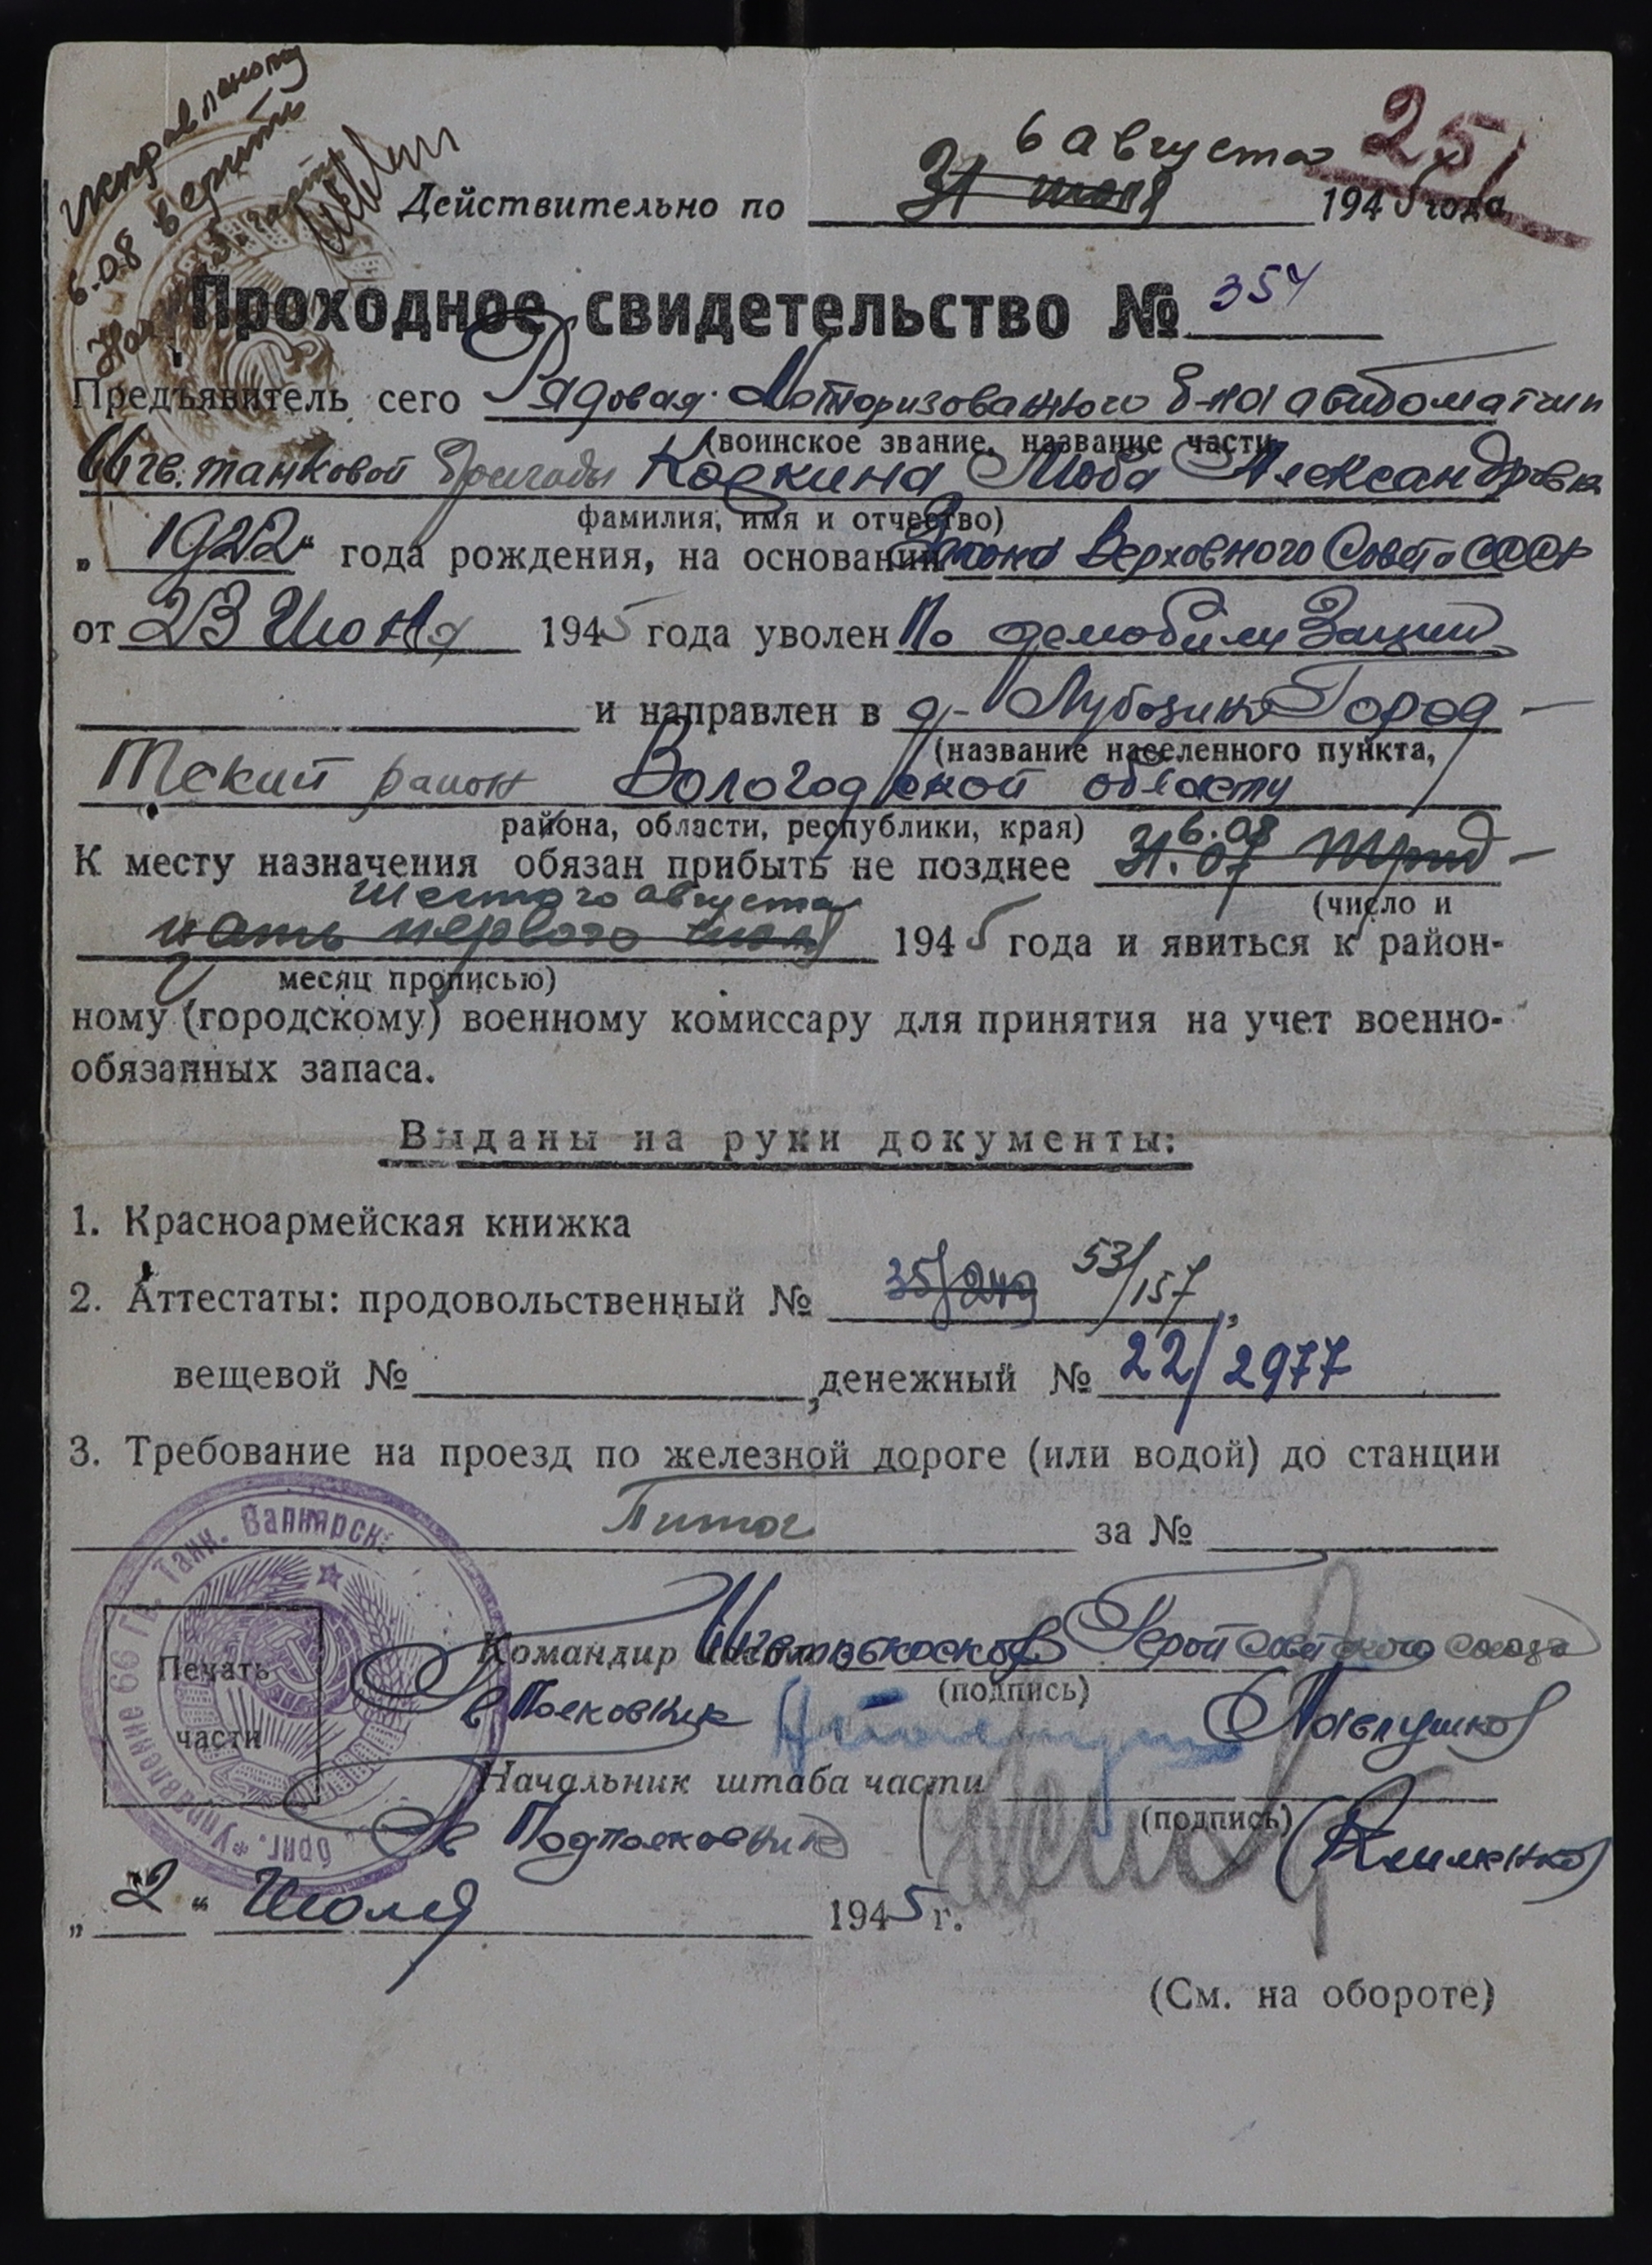 исправленному
6.08 верить
251
6 августа
Действительно по 31 июля 1945 года
Проходное свидетельство № 354
Предъявитель сего Рядовая Моторизованного б-на автоматчик
(воинское звание, название части,
66 гв. танковой бригады Кодкина Люба Александровна
фамилия, имя и отчество)
„ 1922 “ года рождения, на основании Закона Верховного Совета СССР
от 23 Июня 1945 года уволен По демобилизации
и направлен в д- Город-
(название населенного пункта,
ский район Вологодской области
района, области, республики, края)
6.08
К месту назначения обязан прибыть не позднее 31.07 Трид-
(число и
шестого августа
цать первого июля 1945 года и явиться к район-
месяц прописью)
ному (городскому) военному комиссару для принятия на учет военно-
обязанных запаса.
Выданы на руки документы:
1. Красноармейская книжка
2. Аттестаты: продовольственный № 35/249 53/157,
вещевой № , денежный № 22/2977
3. Требование на проезд по железной дороге (или водой) до станции
за №
Управление 66 Гв. Танк. Вапнярск. бриг.
Печать
части
Командир Герой Советского союза
(подпись)
гв Полковник Павлушко
Начальник штаба части
(подпись)
гв Подполковник (Клименко)
„ 2 “ Июля 1945 г.
(См. на обороте)